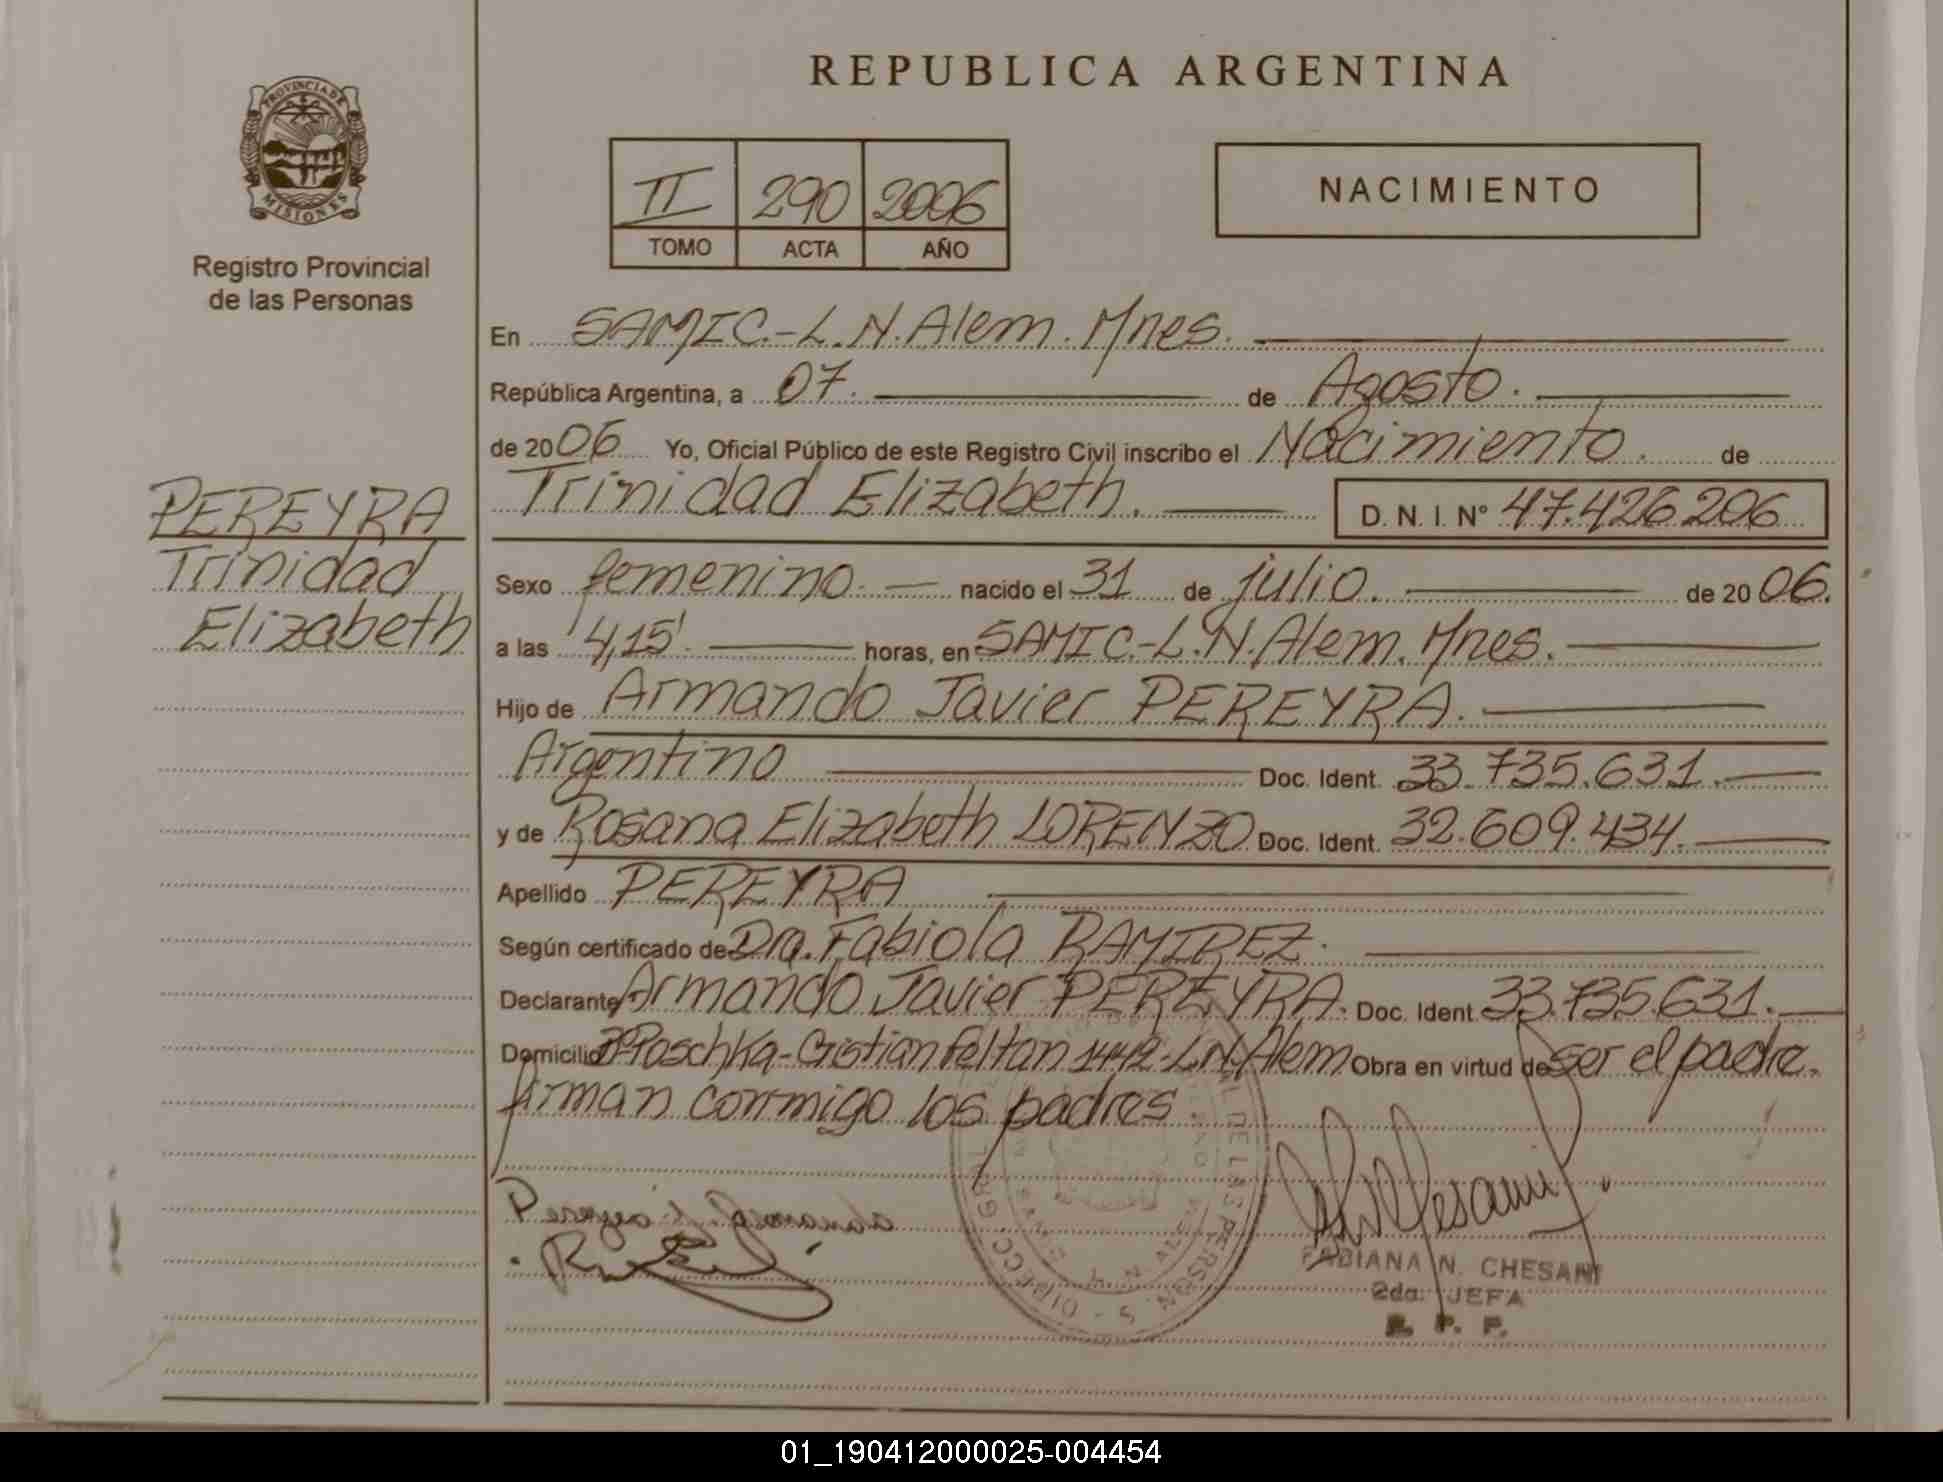 REPUBLICA ARGENTINA
PROVINCIA DE
MISIONES
Registro Provincial
de las Personas
II 290 2006
TOMO ACTA AÑO
NACIMIENTO
PEREYRA
Trinidad
Elizabeth
En SAMIC.-L.N.Alem. Mnes.
República Argentina, a 07. de Agosto.
de 2006 Yo, Oficial Público de este Registro Civil inscribo el Nacimiento. de
Trinidad Elizabeth. D. N. I. N° 47.426206
Sexo femenino. nacido el 31 de julio. de 2006.
a las 4,15' horas, en SAMIC.-L.N.Alem. Mnes.
Hijo de Armando Javier PEREYRA.
Argentino Doc. Ident. 33.735.631.
y de Rosana Elizabeth LORENZO Doc. Ident. 32.609.434.
Apellido PEREYRA
Según certificado de Dra. Fabiola RAMIREZ.
Declarante Armando Javier PEREYRA. Doc. Ident. 33.735.631.
Domicilio Bº Poschka-Cristian Feltan 1442-L.N.Alem Obra en virtud de ser el padre.
firman conmigo los padres.
FABIANA N. CHESANI
2da. JEFA
R. P. P.
01_190412000025-004454